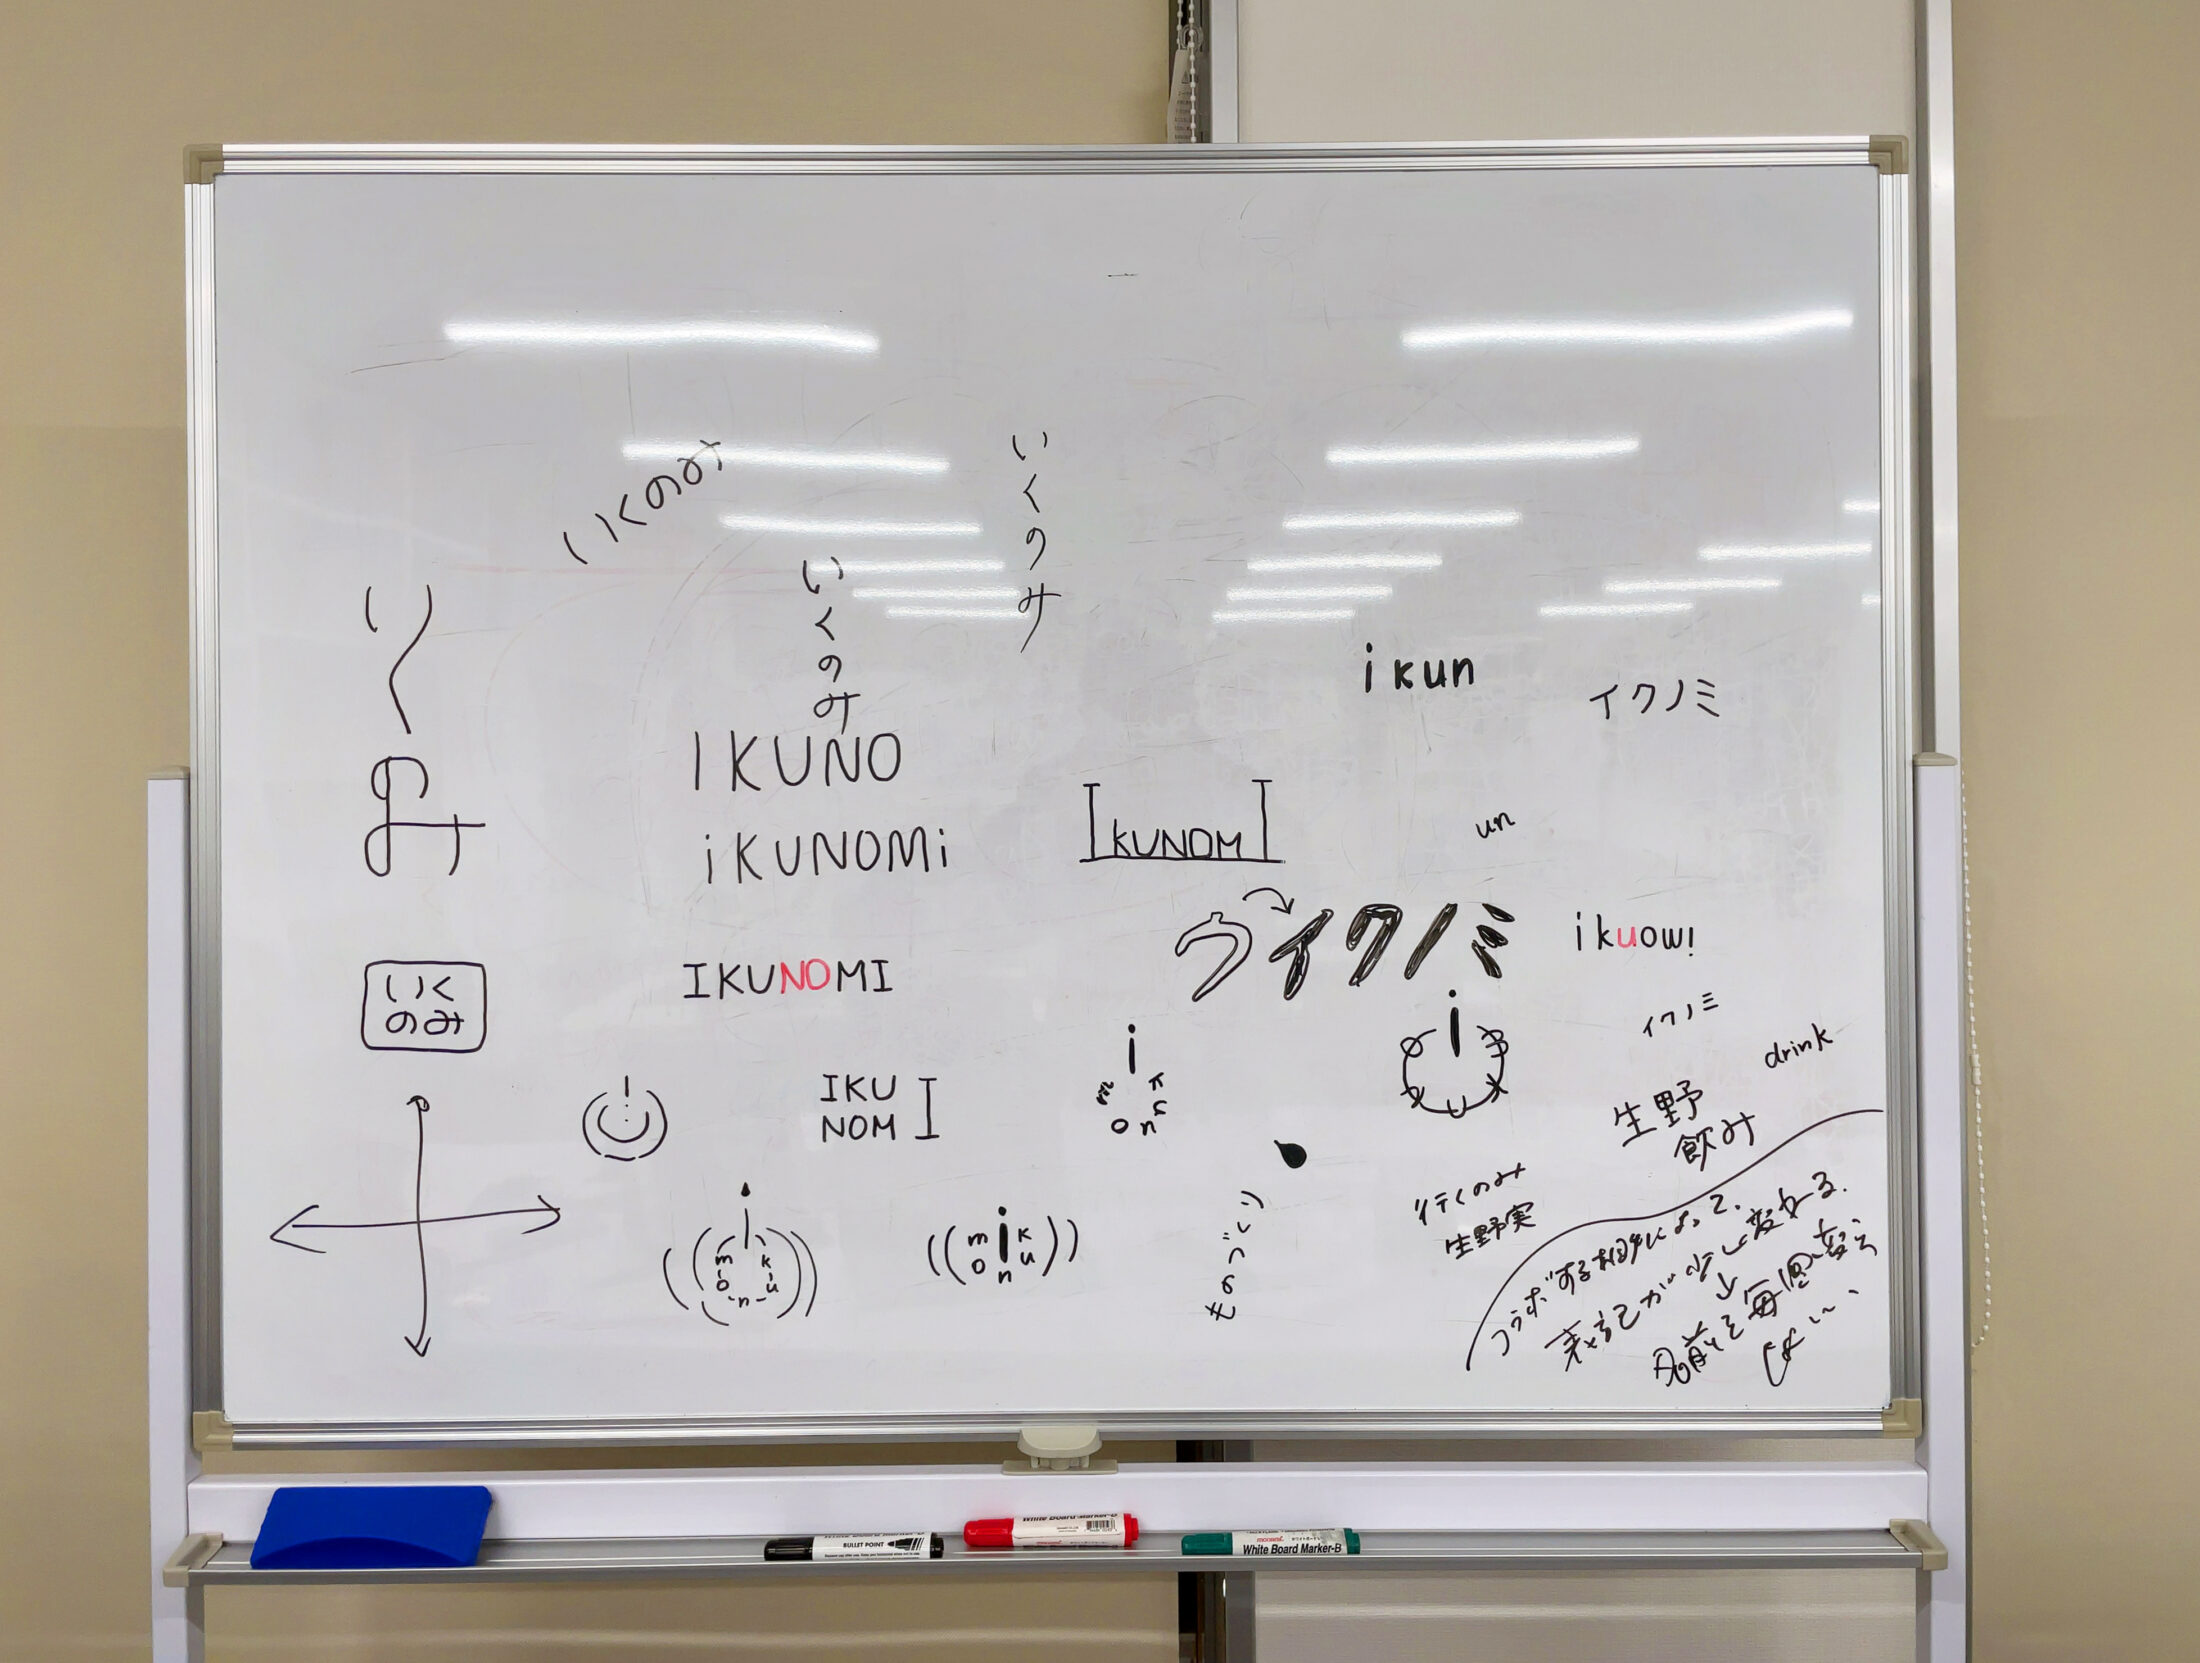 いくのみ
いくのみ
いくのみ
いくのみ
IKUNO
iKUNOMi
IKUNOM I
ikun
イクノミ
un
ウイクノミ
ikuow!
いく
のみ
IKUNOMI
イクノミ
drink
IKU
NOM I
i
m
o
n
生野
飲み
行くのみ
生野実
i
m k
o u
n
m i k
o n u
ものづくり
コラボする相手によって、
表記が少し変わる.
名前を毎回変え